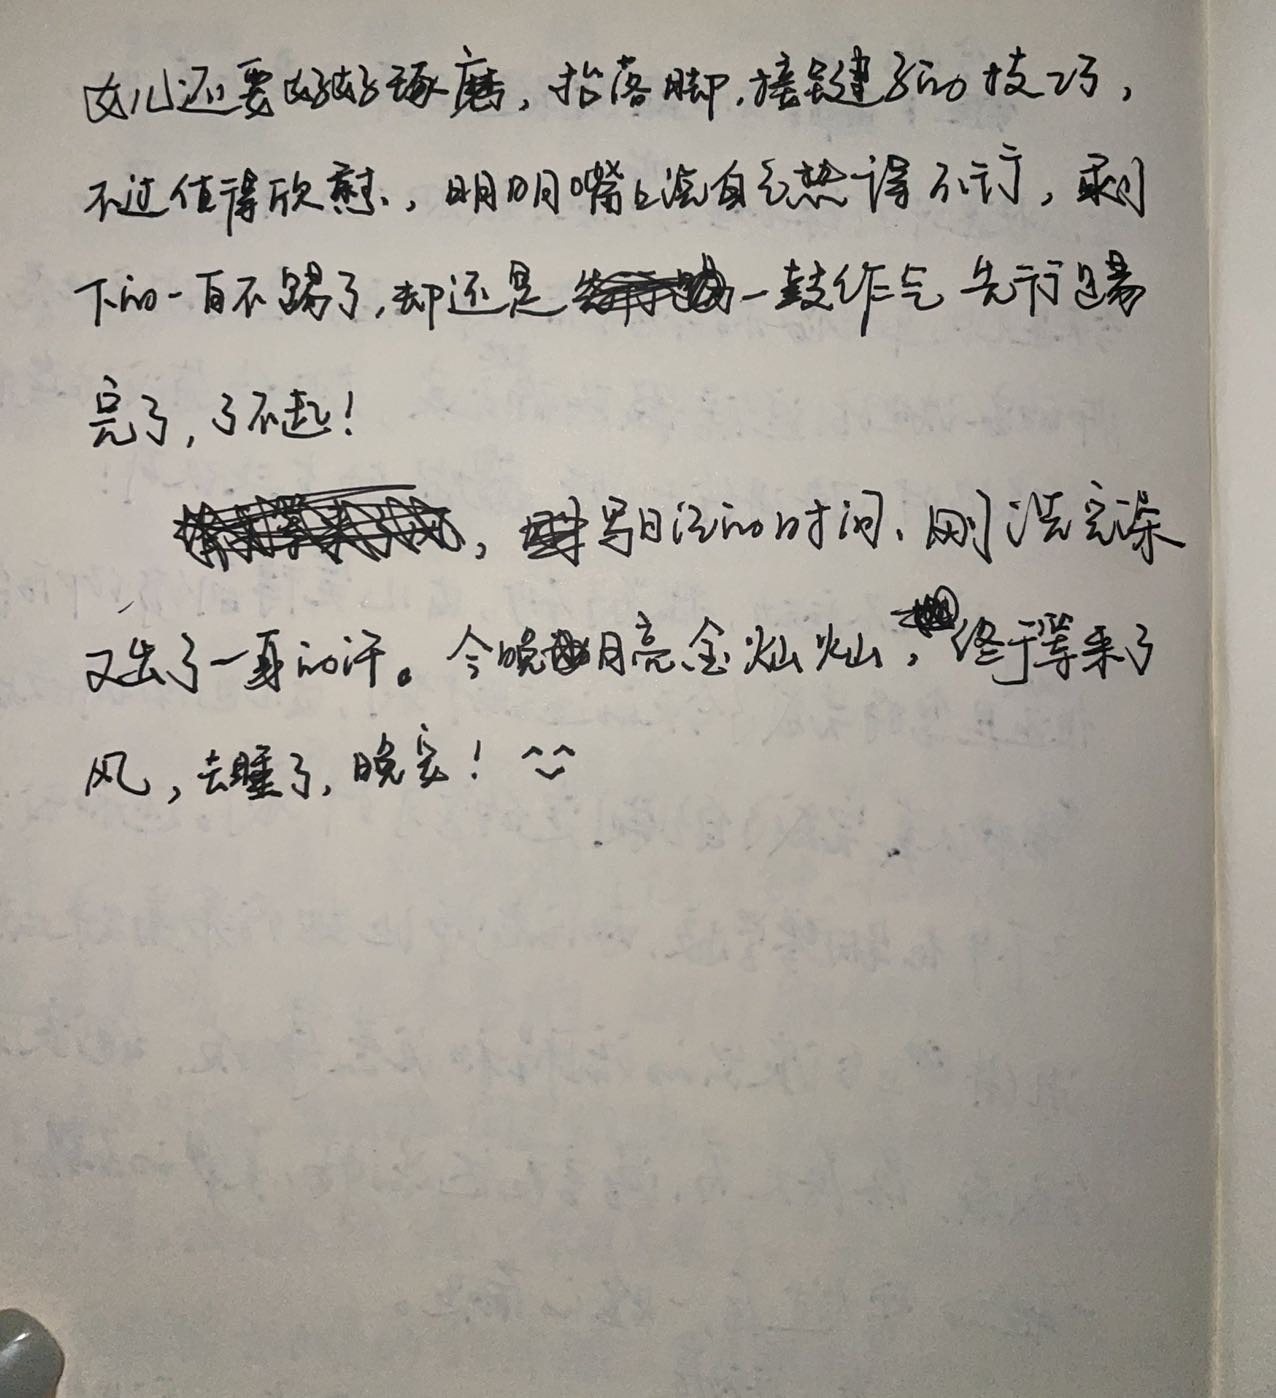 女儿还要好好琢磨，抬落脚，接毽子的技巧，
不过值得欣慰，明明嘴上说自己热得不行，剩
下的一百不踢了，却还是一鼓作气先行踢
完了，了不起！
，写日记的时间、刚洗完澡
又出了一身的汗。今晚月亮金灿灿，终于等来了
风，去睡了，晚安！^^